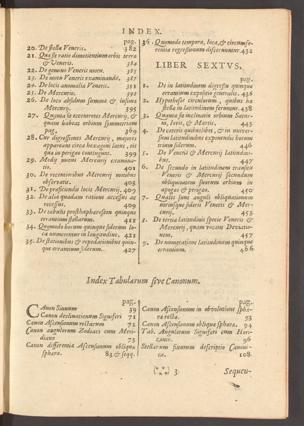 INDEX.
pag.
20. De stella Veneris. 382
21. Quæ sit ratio dimetientium orbis terræ
& Veneris. 384
22. De gemino Veneris motu. 385
23. De motu Veneris examinando. 387
24. De locis anomaliæ Veneris. 391
25. De Mercurio. 392
26. De loco absidum summæ & infimæ
Mercurij. 395
27. Quanta sit eccentrotes Mercurij, &
quam habeat orbium symmetriam
pag. 369
28. Cur digressiones Mercurij, majores
appareant circa hexagoni latus, iis
quæ in perigæo contingunt. 399
29. Medij motus Mercurij examinatio. 401
30. De recentioribus Mercurij motibus
observatis. 405
31. De præficiendis locis Mercurij. 409
32. De alia quadam ratione accessus ac
recessus. 409
33. De tabulis prosthaphæreseon quinque
errantium stellarum. 412
34. Quomodo horum quinque siderum loca
numerentur in longitudine. 421
35. De stationibus & repedationibus quinque
errantium siderum. 427
36. Quomodo tempora, loca, & circumferentiæ
regressionum discernuntur. 432
LIBER SEXTUS.
pag.
1. De in latitudinem digressu quinque
errantium expositio generalis. 436
2. Hypotheses circulorum, quibus hæ
stellæ in latitudinem feruntur. 438
3. Quanta sit inclinatio orbium Saturni,
Iovis, & Martis. 443
4. De cæteris quibuslibet, & in universum
latitudinibus exponendis horum
trium siderum. 446
5. De Veneris & Mercurij latitudinibus.
447
6. De secundo in latitudinem transitu
Veneris & Mercurij secundum
obliquitatem suorum orbium in
apogæo & perigæo. 450
7. Quales sunt anguli obliquationum
utriusque sideris Veneris & Mercurij.
452
8. De tertia latitudinis specie Veneris &
Mercurij, quam vocant Deviationem.
457
9. De numeratione latitudinum quinque
errantium. 466
Index Tabularum sive Canonum.
pag.
Canon Sinuum 39
Canon declinationum Signiferi 71
Canon Ascensionum rectarum 71
Canon angulorum Zodiaci cum Meridiano
73
Canon differentiæ Ascensionum obliquæ
sphæræ. 83 & seqq.
pag.
Canon Ascensionum in obvolutione sphæræ
rectæ. 93
Canon Ascensionum obliquæ sphæræ. 94
Tab. Angulorum Signiferi cum Horizonte.
96
Stellarum fixarum descriptio Canonica.
108.
3
Sequcu-